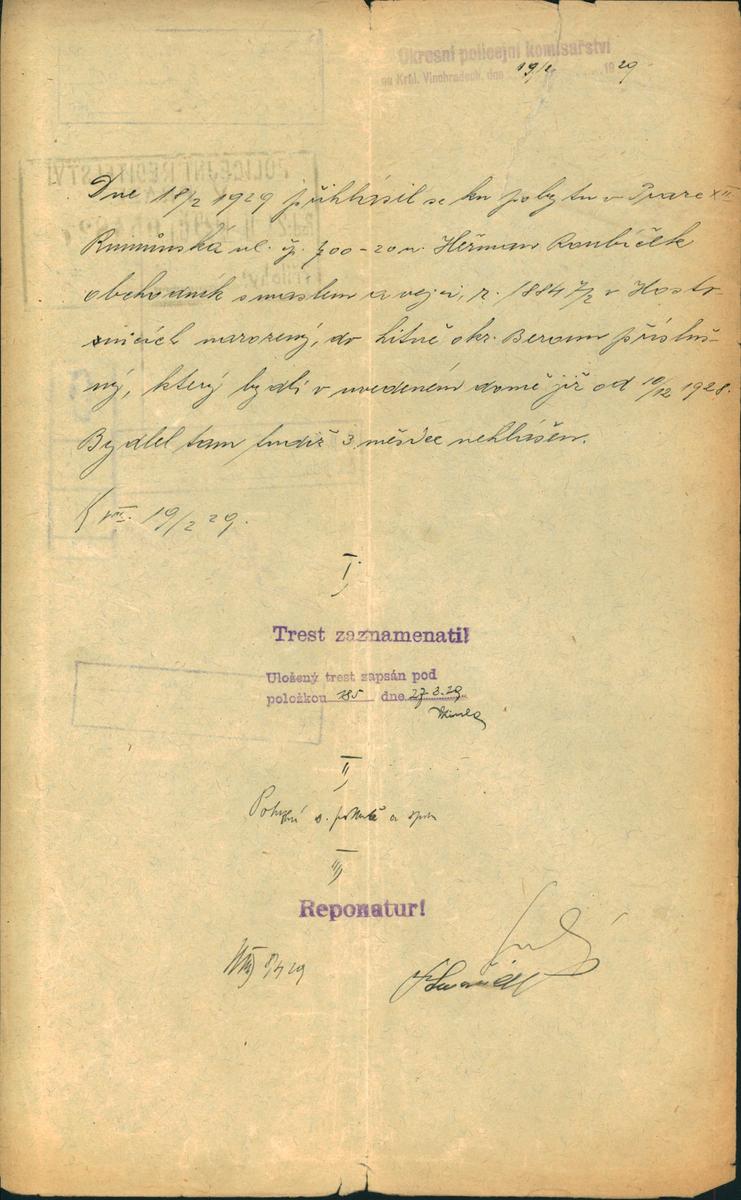 Okresní policejní komisařství
na Král. Vinohradech, dne 19/2 1929
Dne 18/2 1929 přihlásil se ku pobytu v Praze XII
Rumunská ul. čp. 700-20 n. Heřman Roubíček
obchodník s maslem a vejci, r. 1884 7/2 v Hosto-
micích narozený, do Litně okr. Beroun přísluš-
ný, který bydlí v uvedeném domě již od 10/12 1928.
Bydlel tam tudíž 3 měsíce nehlášen.
VIII. 19/2 29.
I.
Trest zaznamenati!
Uložený trest zapsán pod
položkou 185 dne 27.3.29
II
a
III
Reponatur!
8/4 29